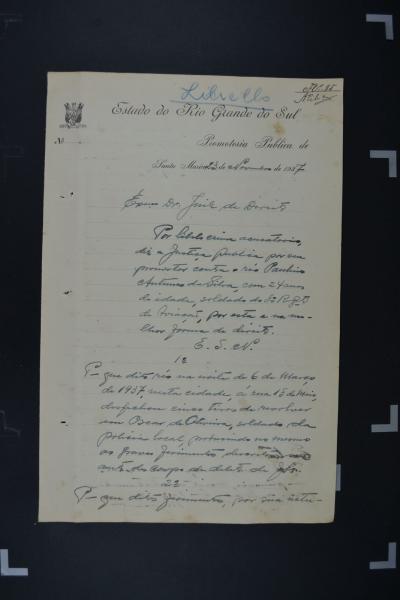 Libello
Estado do Rio Grande do Sul
Nº
Promotoria Publica de
Santa Maria 23 de Novembro de 1937
Exmo Dr. Juiz de Direito
Por libello crime accusatorio,
diz a Justiça Publica por seu
promotor contra o réo Paulino
Antunes da Silva, com 24 annos
de idade, soldado do 3º Regto
de Aviação, por esta e na me-
lhor forma de direito.
E. S. N.
1º
P. que dito réo na noite de 6 de Março
de 1937 nesta cidade, á rua 15 de Maio,
desfechou cinco tiros de revolver
em Oscar de Oliveira, soldado da
policia local, produzindo no mesmo
os graves ferimentos descritos no
auto de corpo de delito de fls.
2º
P. que ditos ferimentos, por sua natu-